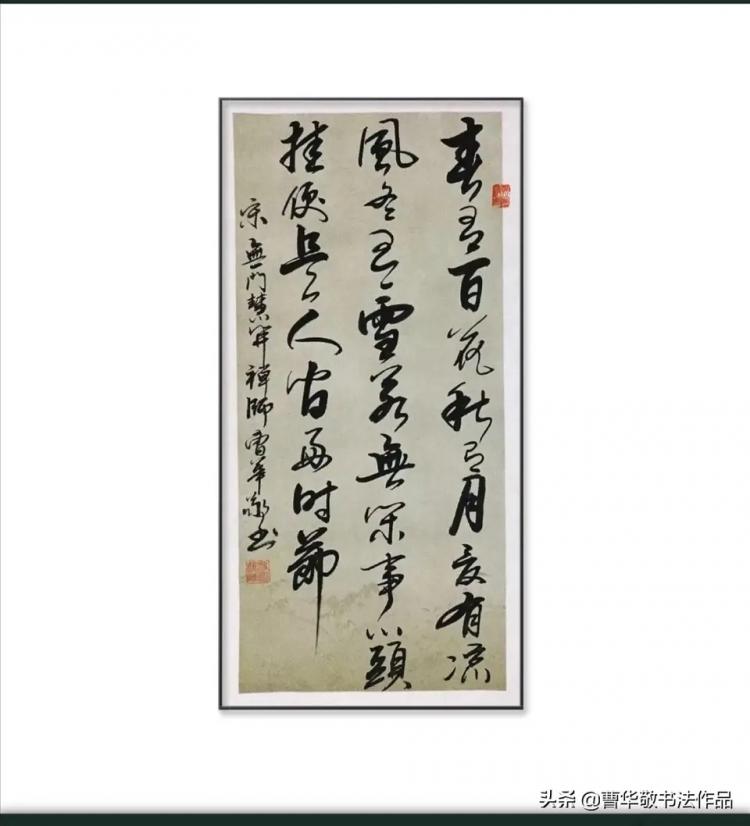 春有百花秋有月夏有凉
風冬有雪若無闲事心頭
挂便是人间好时節
宋無門慧開禪師曹華敬书
头条 @曹华敬书法作品